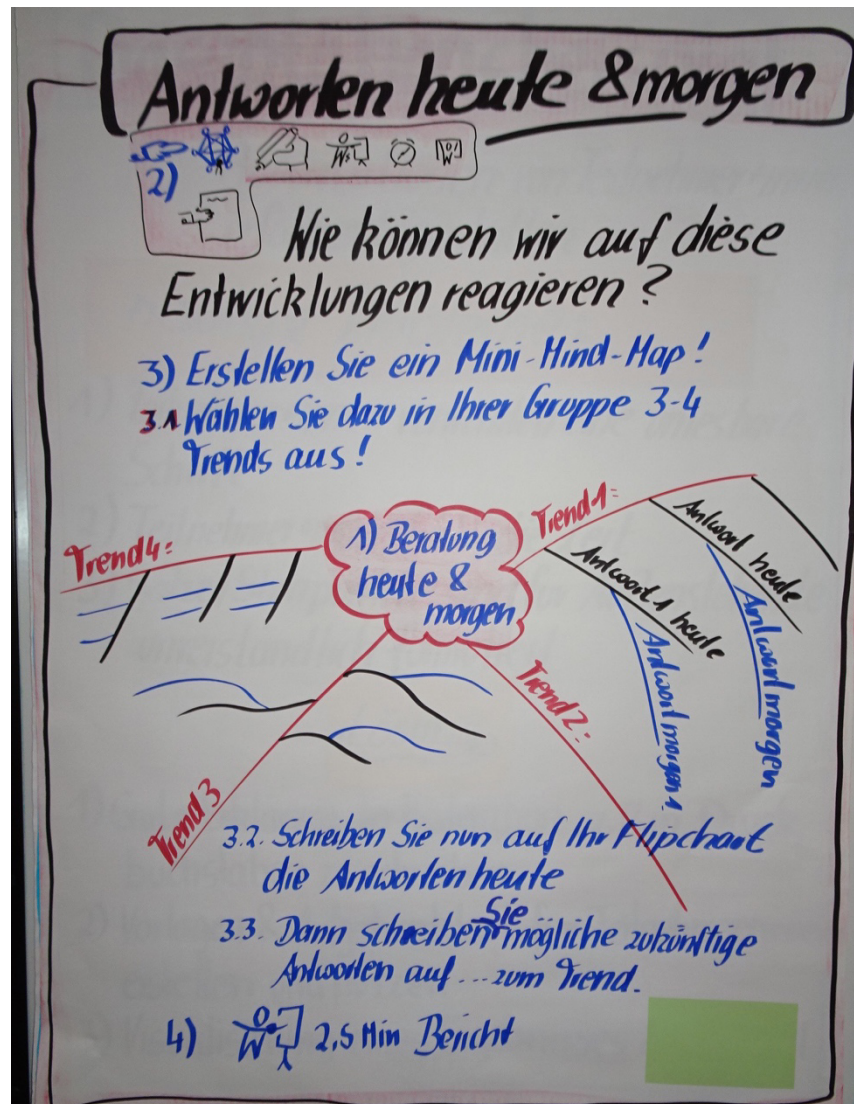 Antworten heute & morgen
2)
Wie können wir auf diese
Entwicklungen reagieren?
3) Erstellen Sie ein Mini-Mind-Map!
3.1 Wählen Sie dazu in Ihrer Gruppe 3-4
Trends aus!
1) Beratung
heute &
morgen
Trend 1:
Antwort 1 heute
Antwort morgen 1
Antwort heute
Antwort morgen
Trend 2:
Trend 3
Trend 4:
3.2. Schreiben Sie nun auf Ihr Flipchart
die Antworten heute
3.3. Dann schreiben Sie mögliche zukünftige
Antworten auf ... zum Trend.
4) 2,5 Min Bericht